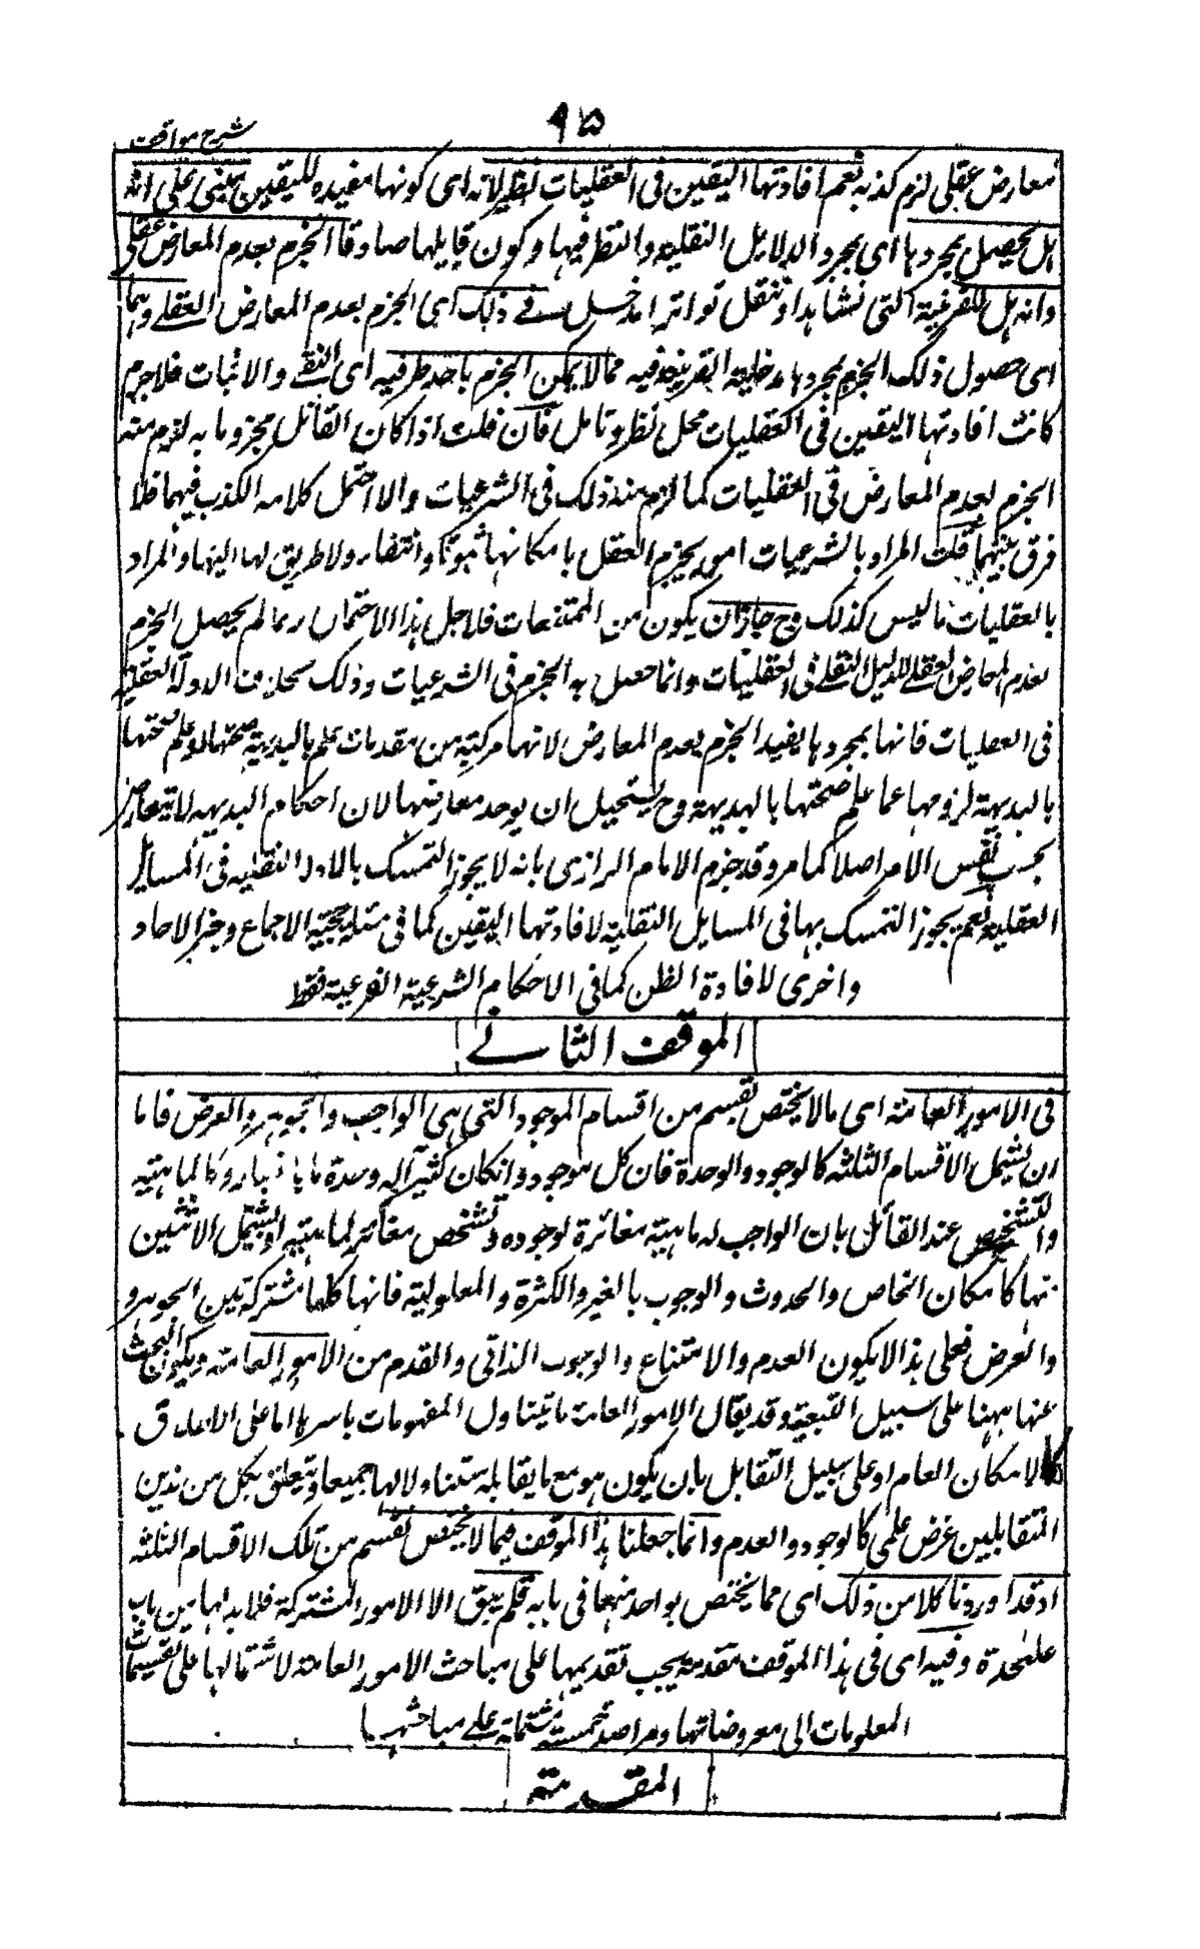 ٩٥
شرح مواقف
معارض عقلى لزم كذبه نعم افادتها اليقين فى العقليات نظر لانه اى كونها مفيدة لليقين مبنى على انه
هل يحصل بمجردها اى بمجرد الدلايل النقلية والنظر فيها وكون قايلها صادقا الجزم بعدم المعارض عقلى
وانه هل للقرينة التى تشاهد او تنقل تواترا مدخل فى ذلك اى الجزم بعدم المعارض العقلے وهما
اى حصول ذلك الجزم بمجردها ومدخلية القرينة فيه ممالا يمكن الجزم باحد طرفيه اى النفے والاثبات فلاجرم
كانت افادتها اليقين فى العقليات محل نظر وتامل فان قلت اذا كان القائل مجزوما به لزم منه
الجزم بعدم المعارض فى العقليات كما لزم منه ذلك فى الشرعيات والا احتمل كلامه الكذب فيهما فلا
فرق بينهما قلت المراد بالشرعيات امور يجزم العقل بامكانها ثبوتا وانتفاء ولا طريق لها اليها والمراد
بالعقليات ما ليس كذلك وح جازان يكون من الممتنعات فلاجل هذا الاحتمال ربما لم يحصل الجزم
بعدم المعارض العقلے للدليل النقلے فى العقليات وانما حصل به الجزم فى الشرعيات وذلك بخلاف الادلة العقلية
فى العقليات فانها بمجردها يفيد الجزم بعدم المعارض لانها مركبة من مقدمات علم بالبديهة صحتها او علم صحتها
بالبديهة لزومها عما علم صحتها بالبديهة وح يستحيل ان يوجد معارضها لان احكام البديهه لا تتعارض
بحسب نفس الامر اصلا كما مر وقد جزم الامام الرازى بانه لا يجوز التمسك بالادلة النقليه فى المسايل
العقلية نعم يجوز التمسك بها فى المسايل النقلية لافادتها اليقين كما فى مسئلة حجية الاجماع وخبر الاحاد
واخرى لافادة الظن كما فى الاحكام الشرعية الفرعية فقط
الموقف الثانے
فى الامور العامة اى مالا يختص بقسم من اقسام الموجود التى هى الواجب والجوهر والعرض فاما
ان يشمل الاقسام الثلثه كالوجود والوحدة فان كل موجود وانكان كثيرا له وحدة ما باعتبار وكالماهية
والتشخص عند القائل بان الواجب له ماهية مغائرة لوجوده وتشخص مغائر لماهيته او يشمل الاثنين
منها كالامكان الخاص والحدوث والوجوب بالغير والكثرة والمعلولية فانها كلها مشتركة بين الجوهر و
والعرض فعلى هذا لا يكون العدم والامتناع والوجوب الذاتى والقدم من الامور العامة ويكون البحث
عنها ههنا على سبيل التبعية وقد يقال الامور العامة ما يتناول المفهومات باسرها اما على الاطلاق
كالامكان العام او على سبيل التقابل بان يكون هو مع ما يقابله متناولا لها جميعا ويتعلق بكل من هذين
المتقابلين غرض علمى كالوجود والعدم وانما جعلنا هذا الموقف فيما لا يختص بقسم من تلك الاقسام الثلثه
اذ قد اوردنا كلا من ذلك اى مما يختص بواحد منها فى بابه فلم يبق الا الامور المشتركة فلا بد لها من باب
علىحدة وفيه اى فى هذا الموقف مقدمة يجب تقديمها على مباحث الامور العامة لاشتمالها على تقسيمات
المعلومات الى معروضاتها ومراصد خمسة مشتملة علے مباحثها
المقدمة